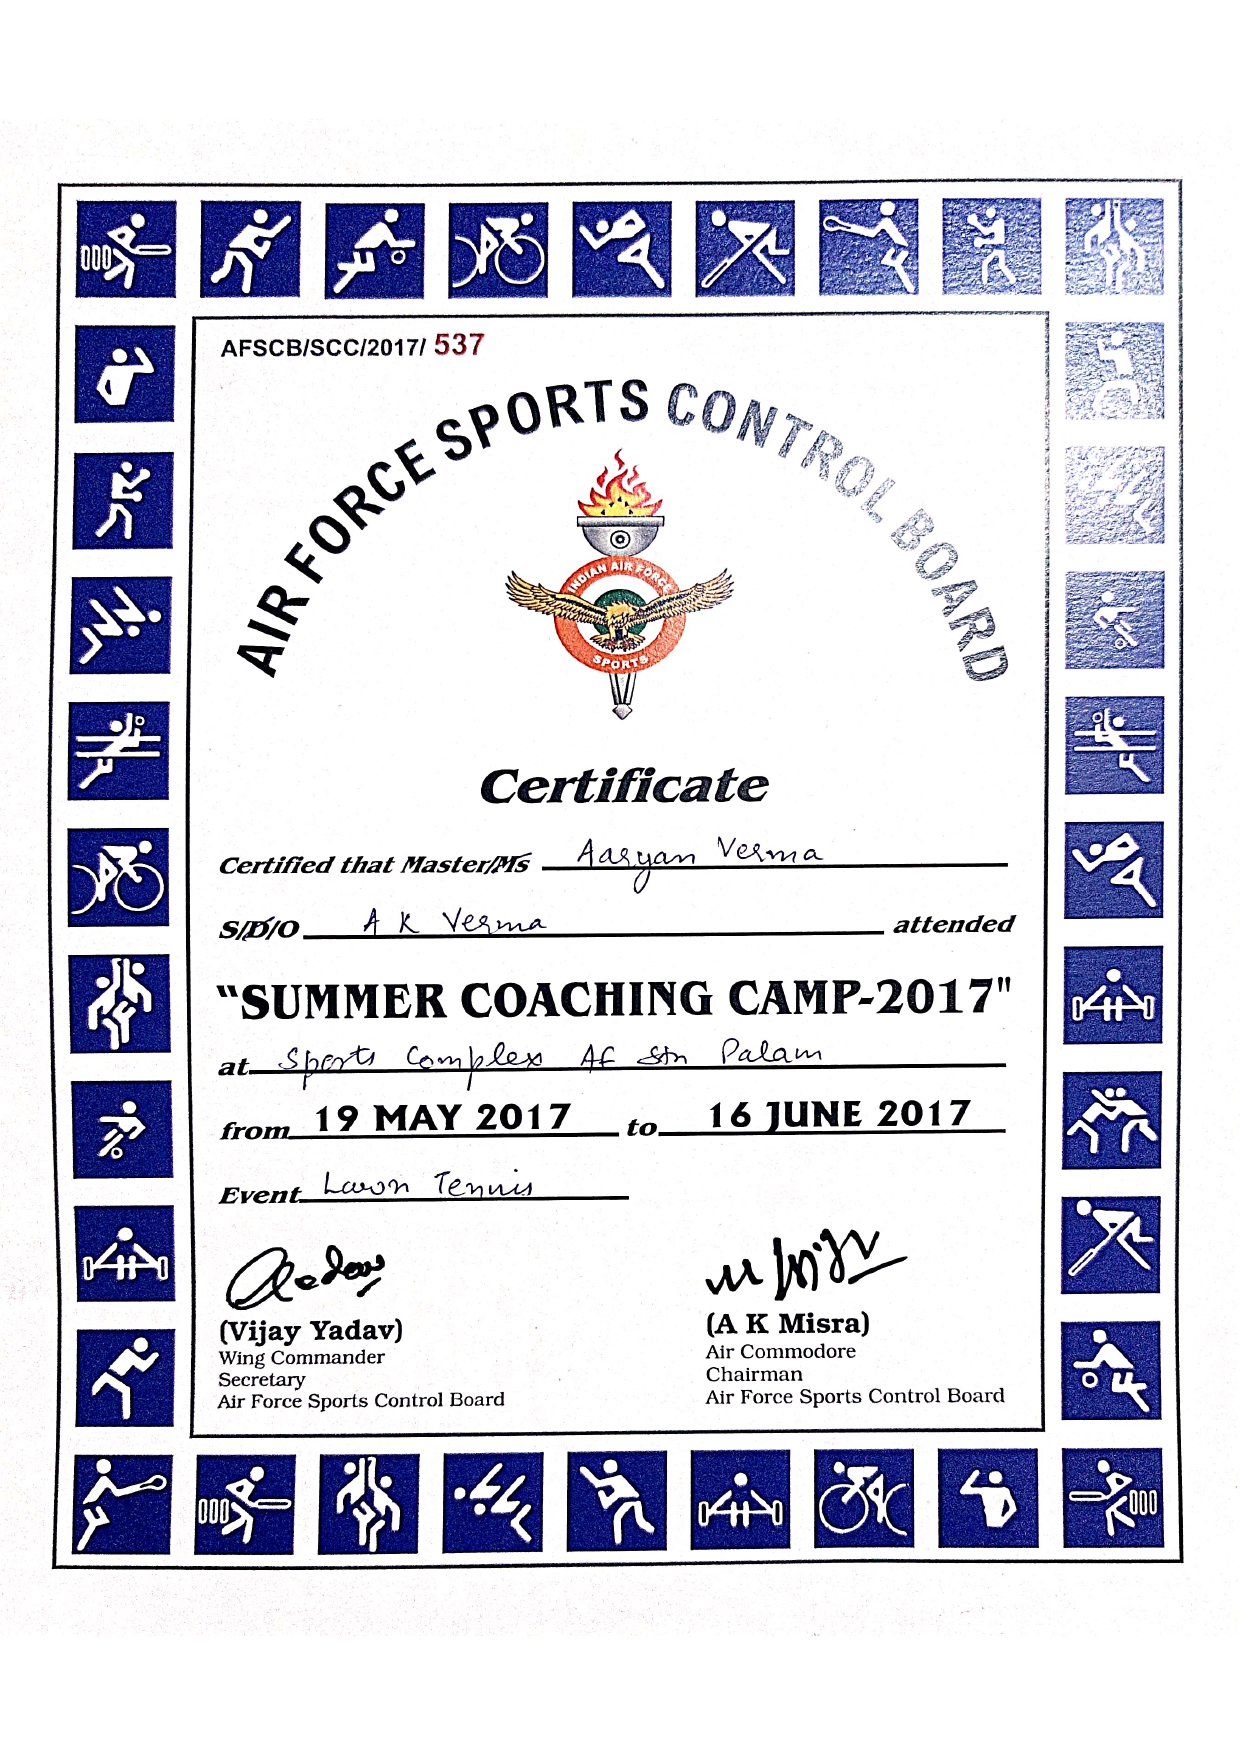 AFSCB/SCC/2017/ 537
AIR FORCE SPORTS CONTROL BOARD
INDIAN AIR FORCE
SPORTS
Certificate
Certified that Master/Ms Aaryan Verma
S/D/O A K Verma attended
“SUMMER COACHING CAMP-2017"
at Sports Complex AF Stn Palam
from 19 MAY 2017 to 16 JUNE 2017
Event Lawn Tennis
(Vijay Yadav)
Wing Commander
Secretary
Air Force Sports Control Board
(A K Misra)
Air Commodore
Chairman
Air Force Sports Control Board